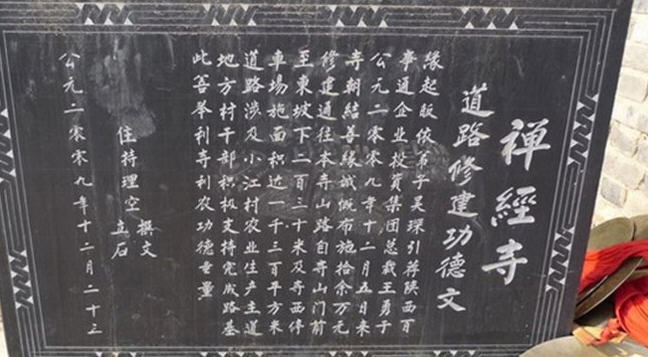 禅經寺
道路修建功德文
缘起皈依弟子吴琛引荐陕西百
事通企业投资集团总裁王勇于
公元二零零九年十二月五日来
寺朝结善缘诚慨布施拾余万元
修建通往本寺山路自寺山门前
至東坡下二百三十米及寺西停
車場施面积近一千三百平方米
道路涉及小江村农业生产主道
地方村干部积极支持完成路基
此善举利寺利农功德量
撰文
住持理空 立石
公元二零零九年十二月二十三